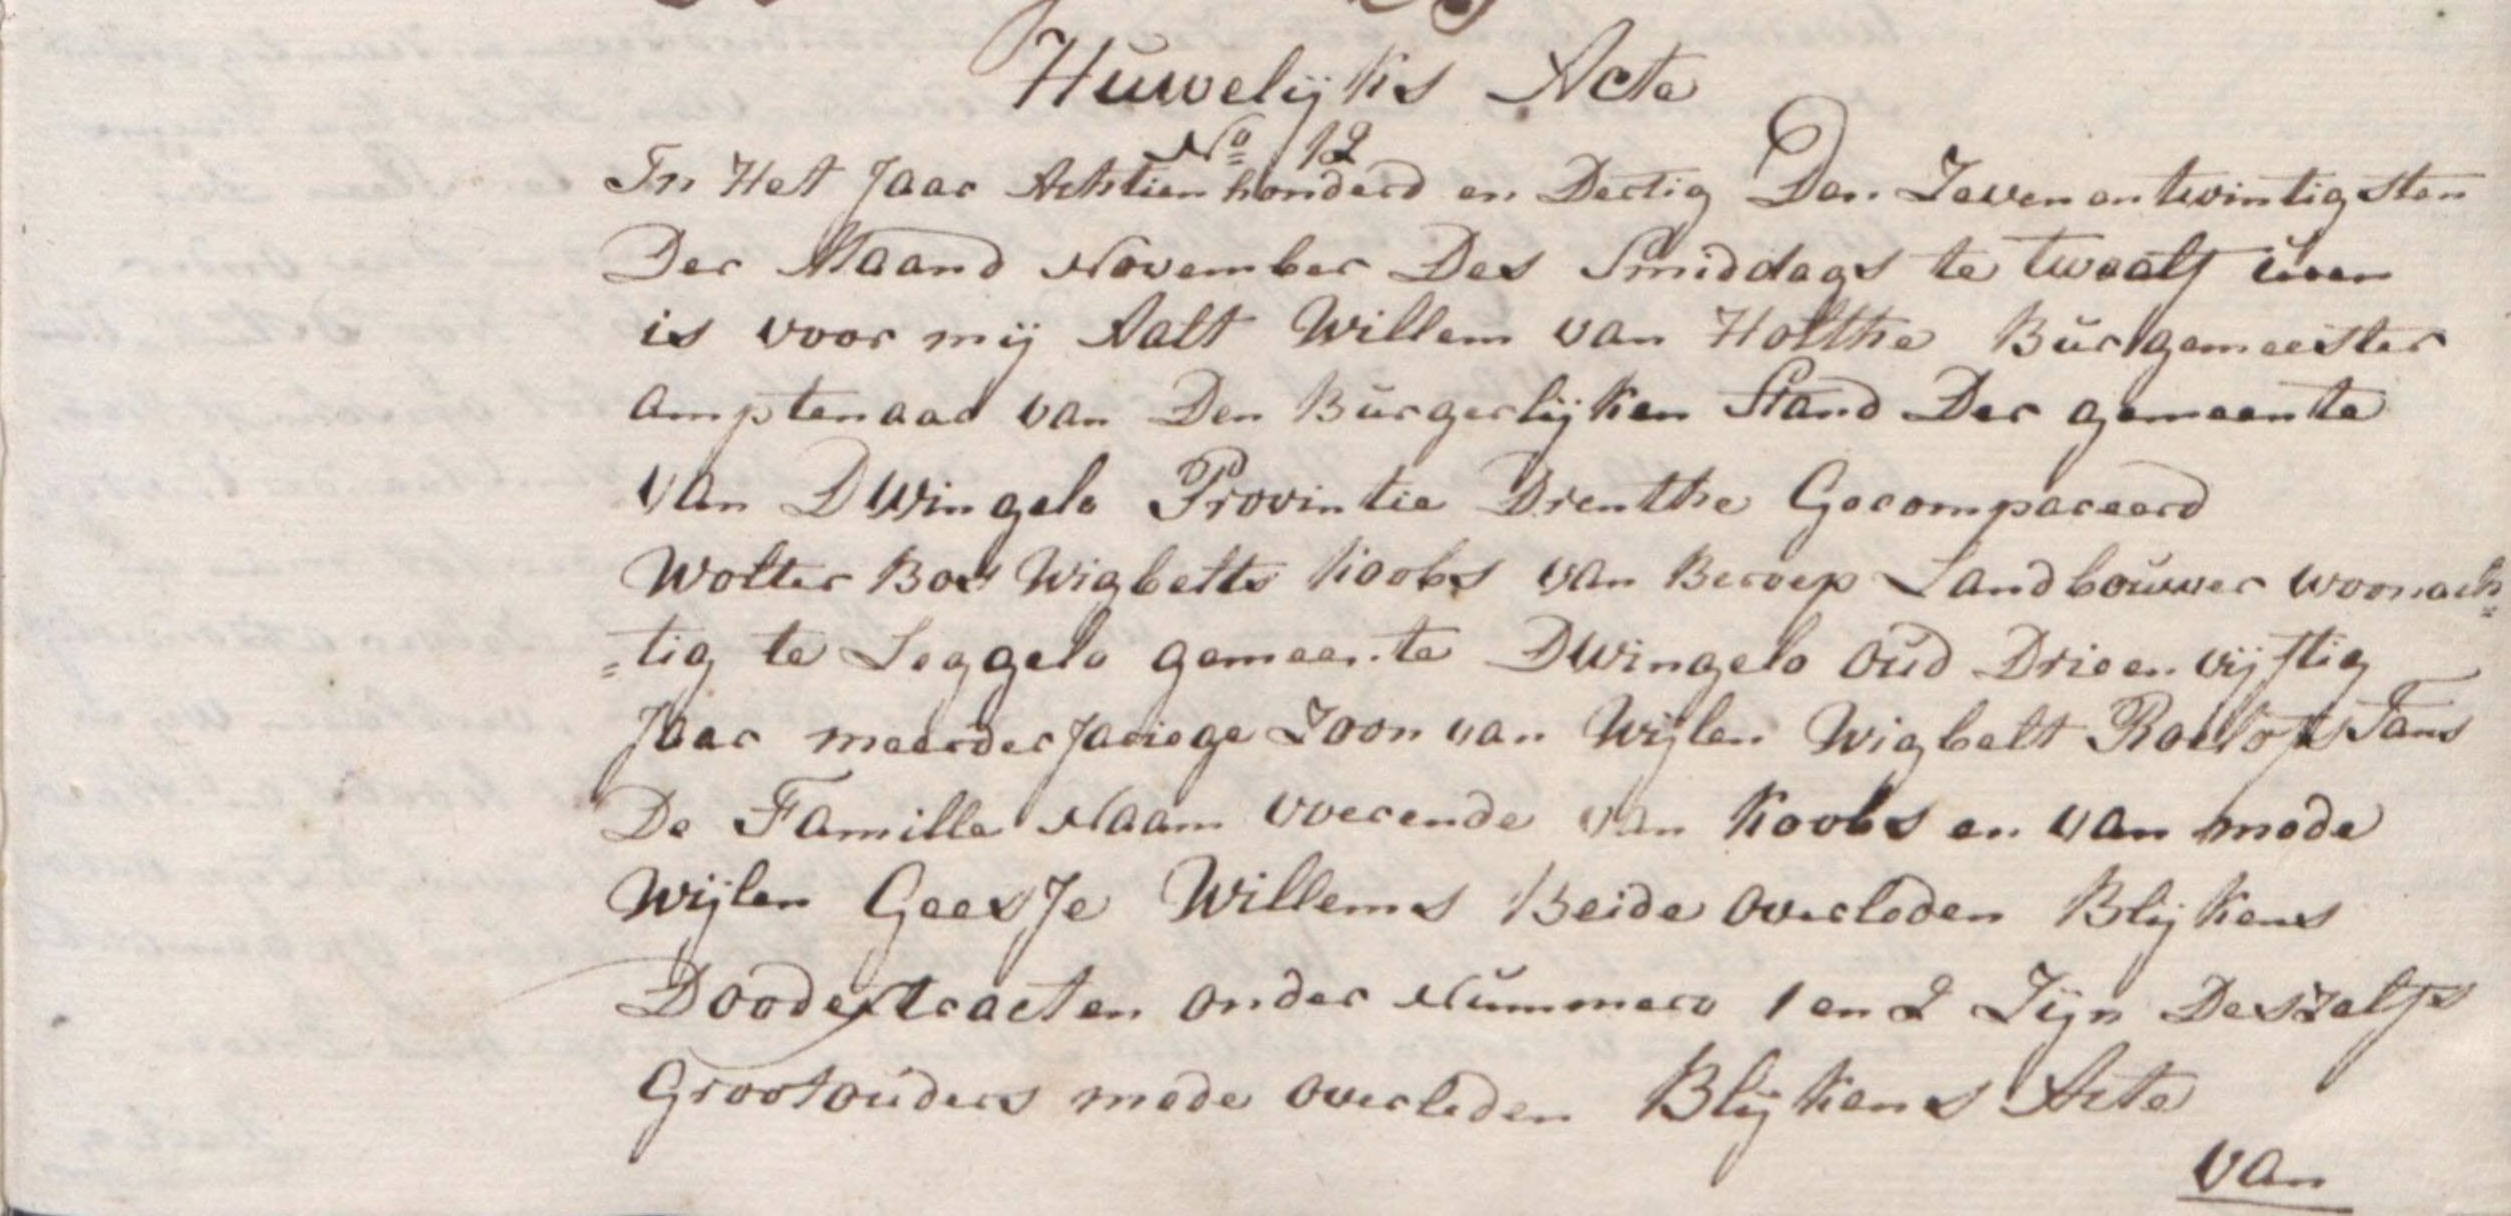 Huwelijks Acte
No 12
In Het Jaar Achtien honderd en Dertig Den Zevenentwintigsten
Der Maand November Des Smiddags te twaalf uren
is voor mij Aalt Willem van Holthe Burgemeester
amptenaar van Den Burgerlijken Stand Der gemeente
van Dwingelo Provintie Drenthe Gecompareerd
Wolter Bos Wigbelts Koobs van Beroep Landbouwer woonach
=tig te Leggelo gemeente Dwingelo oud Drieenvijftig
Jaar meerderjariege Zoon van Wijlen Wigbelt Roelofs Tans
De Famille Naam voerende van Koobs en van mede
Wijlen Geesje Willems Beide overleden Blijkens
Doodextracten onder Nummero 1 en 2 Zijn Deszelfs
Grootouders mede overleden Blijkens Acte
van